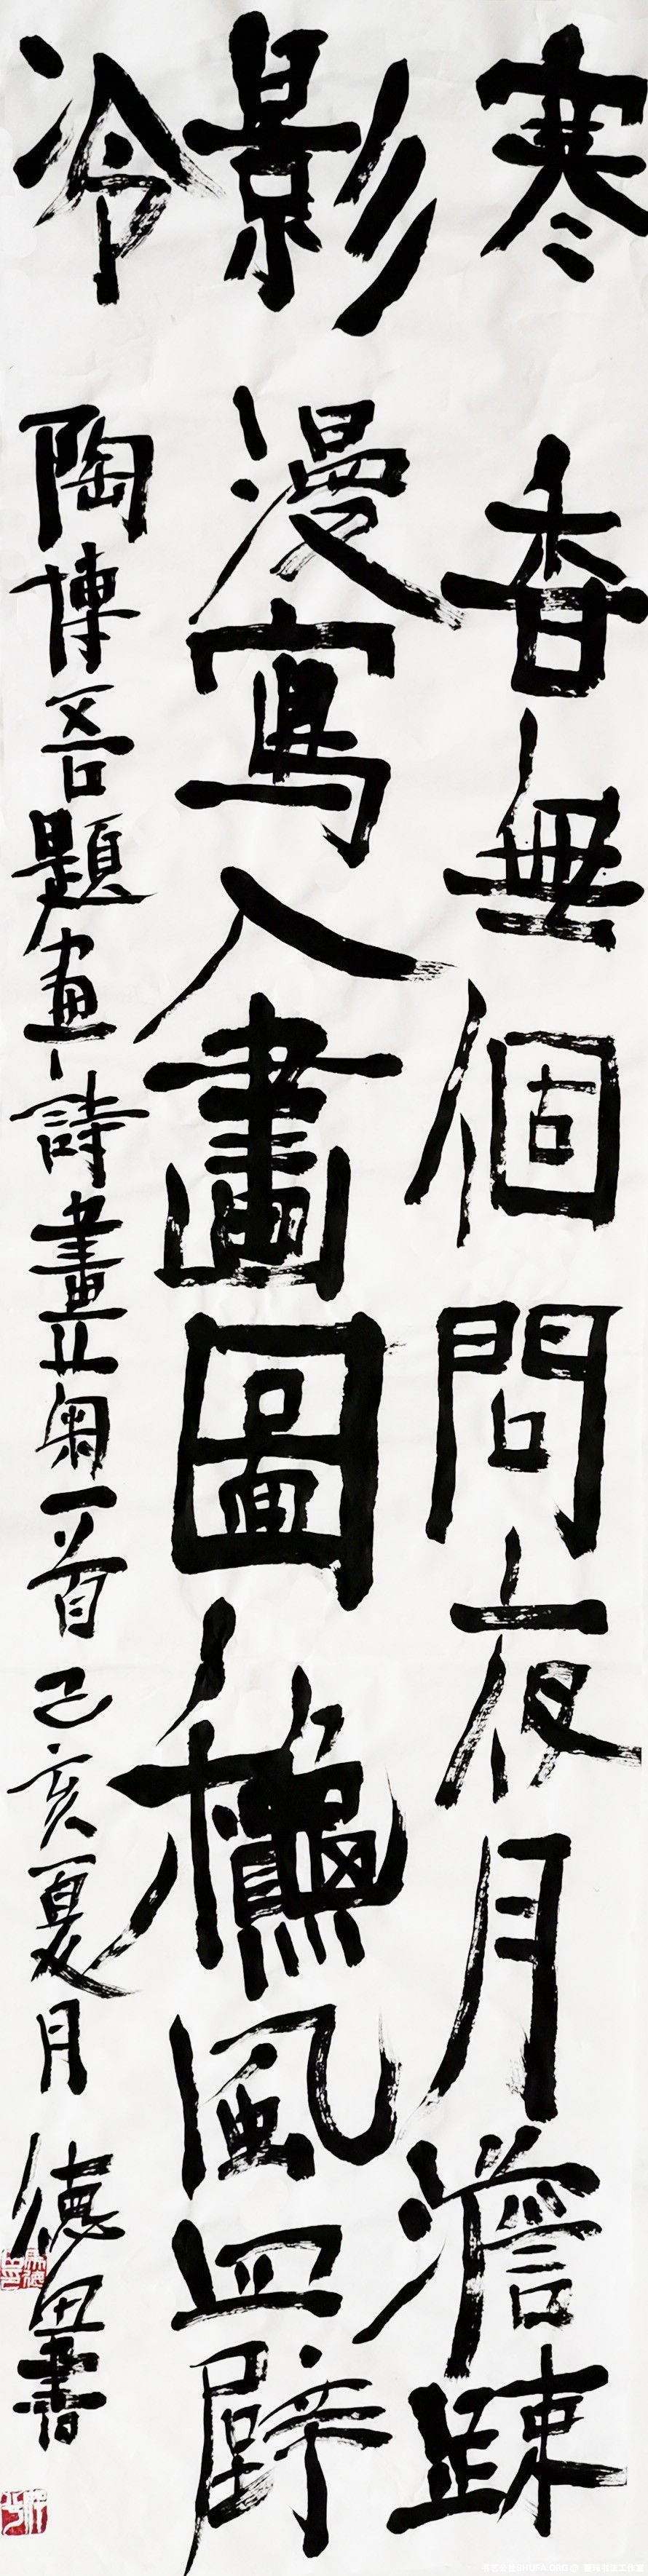 寒香無個問夜月澹疎
影漫寫入畫圖龝風四壁
冷 陶博吾題畫詩畫菊一首 己亥夏月 德思書